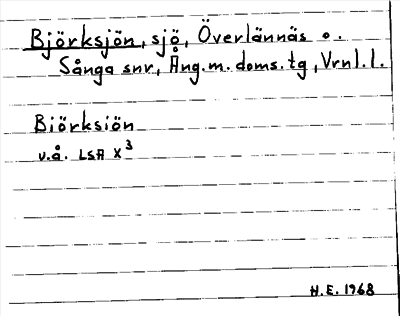 Björksjön, sjö, Överlännäs o.
Sånga snr, Ång.m.doms.tg, Vrnl.l.
Biörksiön
u.å. LSA X³
H.E. 1968